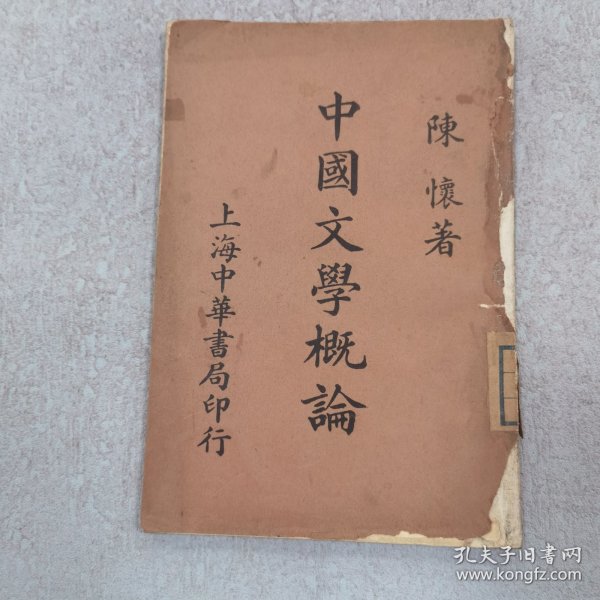 陳懷著
中國文學概論
上海中華書局印行
孔夫子旧书网
www.kongfz.com